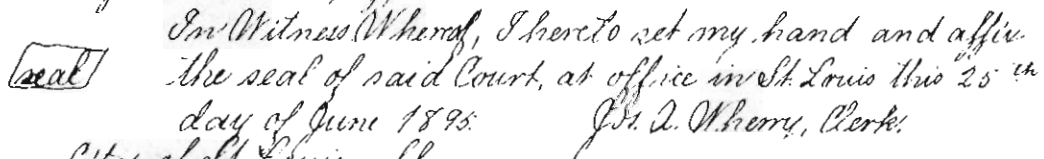 In Witness Whereof, I hereto set my hand and affix
seal the seal of said Court, at office in St. Louis this 25th
day of June 1895. Jos. A. Wherry, Clerk.
City of St. Louis